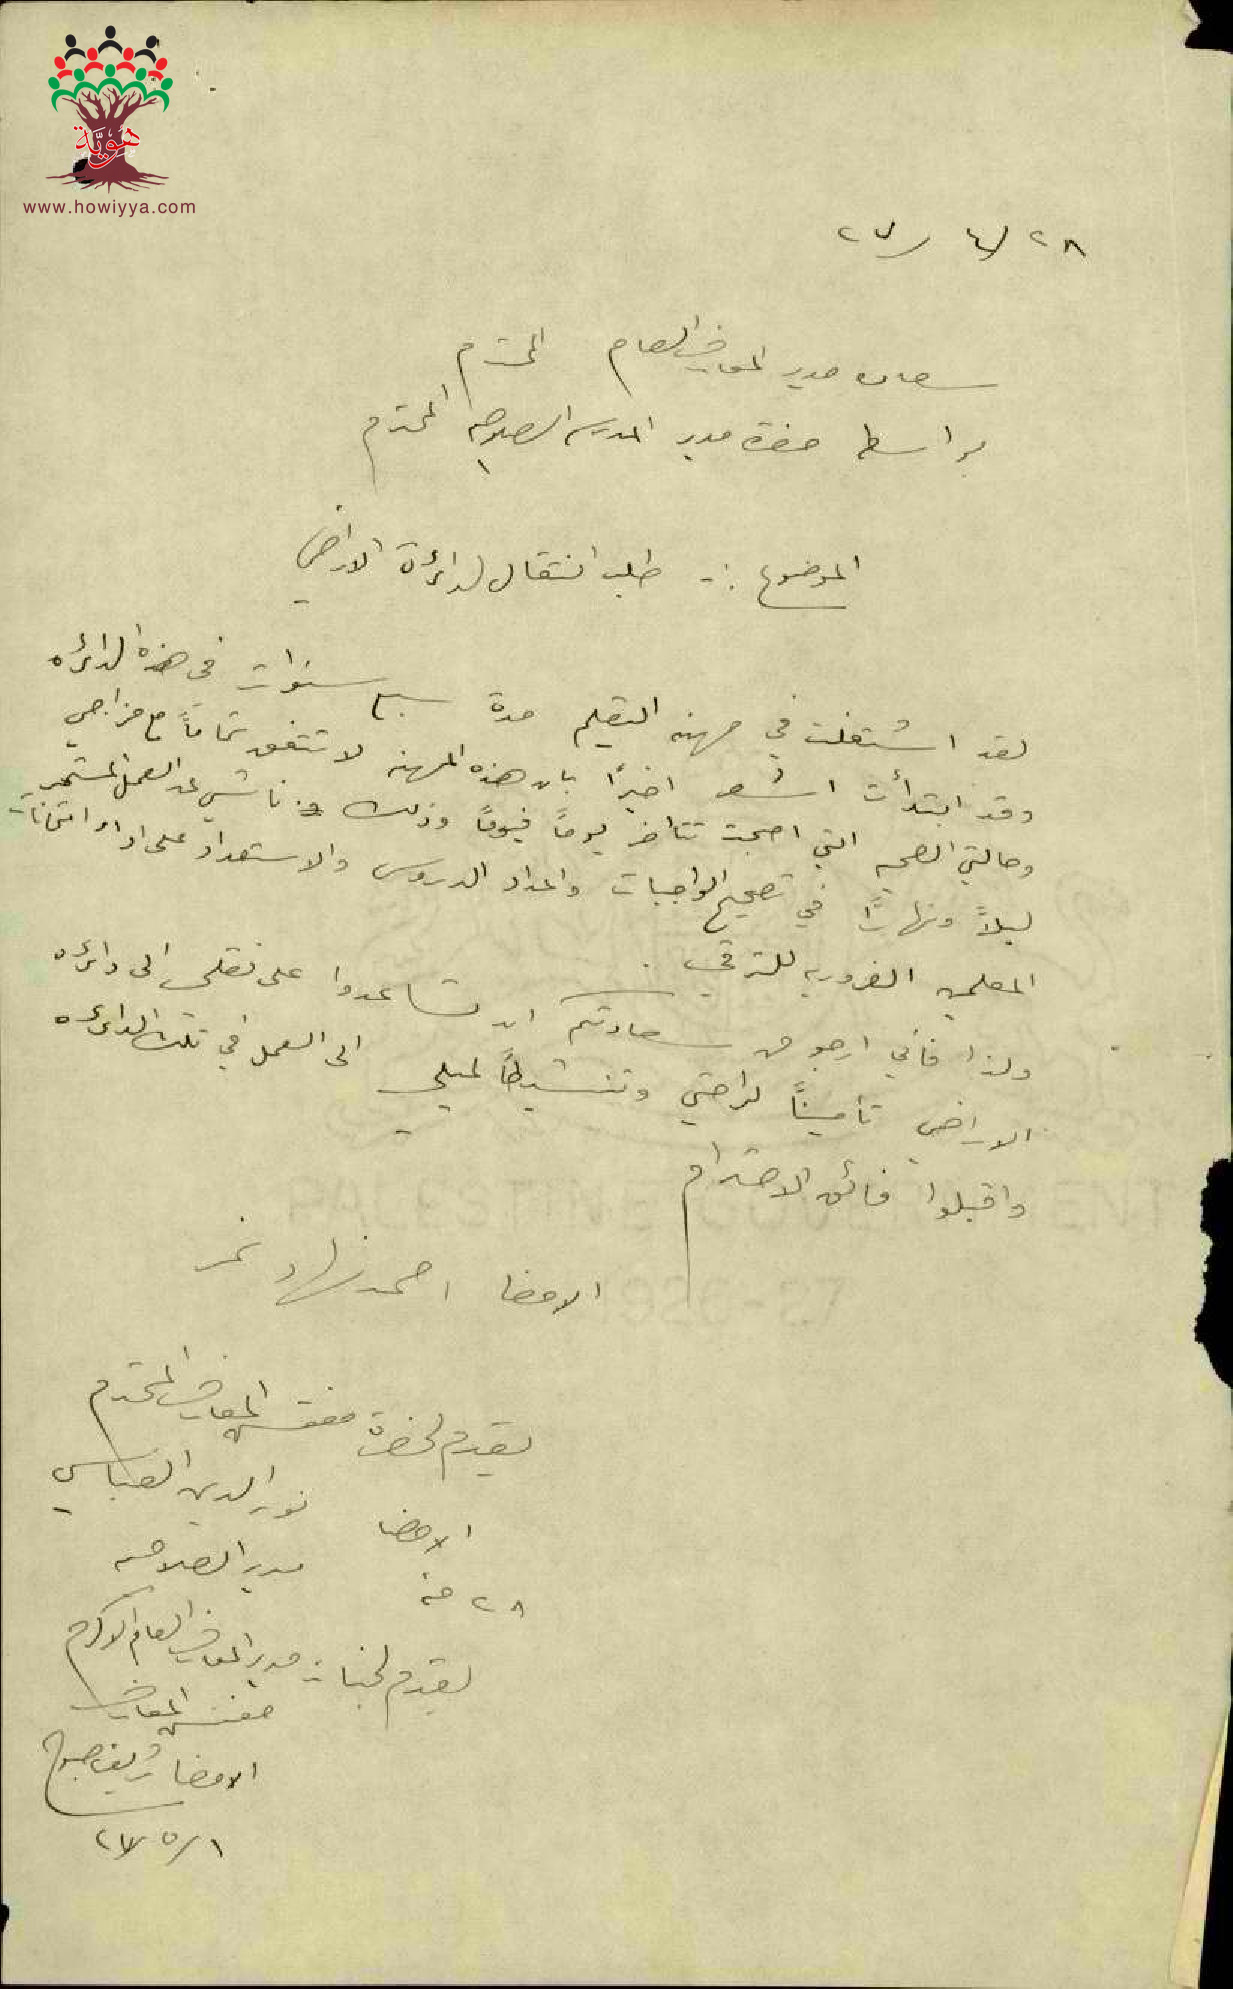 هوية
www.howiyya.com
٢٨/٤/٢٧
سعادة مدير المعارف العام المحترم
بواسطة حضرة مدير المدرسة الصلاحيه المحترم
الموضوع :- طلب انتقال لدائرة الاراضي
لقد اشتغلت في مهنه التعليم مدة سبع سنوات في هذه الدائره
وقد ابتدأت اشعر اخيرًا بان هذه المهنه لا تتفق تمامًا مع مزاجي
وحالتي الصحيه التي اصبحت تتأخر يومًا فيومًا وذلك ناشئ عن العمل المستمر
ليلاً ونهارًا في تصحيح الواجبات واعداد الدروس والاستعداد على اداء امتحانات
المعلمين الضروريه للترقي .
ولذا فاني ارجو من سعادتكم ان تساعدوا على نقلي الى دائره
الاراضي تأمينًا لراحتي وتنشيطًا لميلي الى العمل في تلك الدائره
واقبلوا فائق الاحترام
الامضا احمد نهاد نمر
يقدم لحضرة مفتش المعارف المحترم
الامضا نور الدين العباسي
٢٨ منه مدير الصلاحيه
يقدم لجناب مدير المعارف العام الاكرم
مفتش المعارف
الامضا شريف صبوح
١/٥/٢٧
PALESTINE GOVERNMENT
1926-27